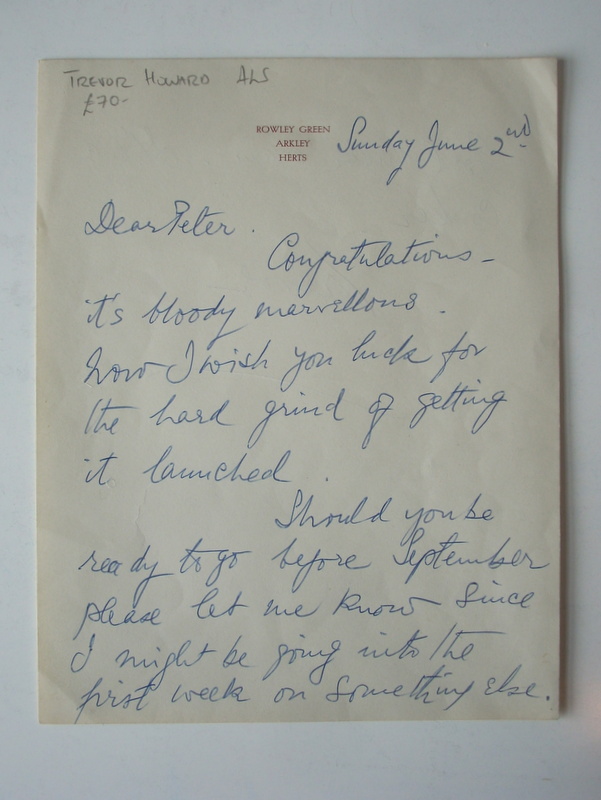 TREVOR HOWARD ALS
£70-
ROWLEY GREEN
ARKLEY
HERTS
Sunday June 2nd
Dear Peter.
Congratulations -
it's bloody marvellous.
Now I wish you luck for
the hard grind of getting
it launched.
Should you be
ready to go before September
please let me know since
I might be going into the
first week on something else.